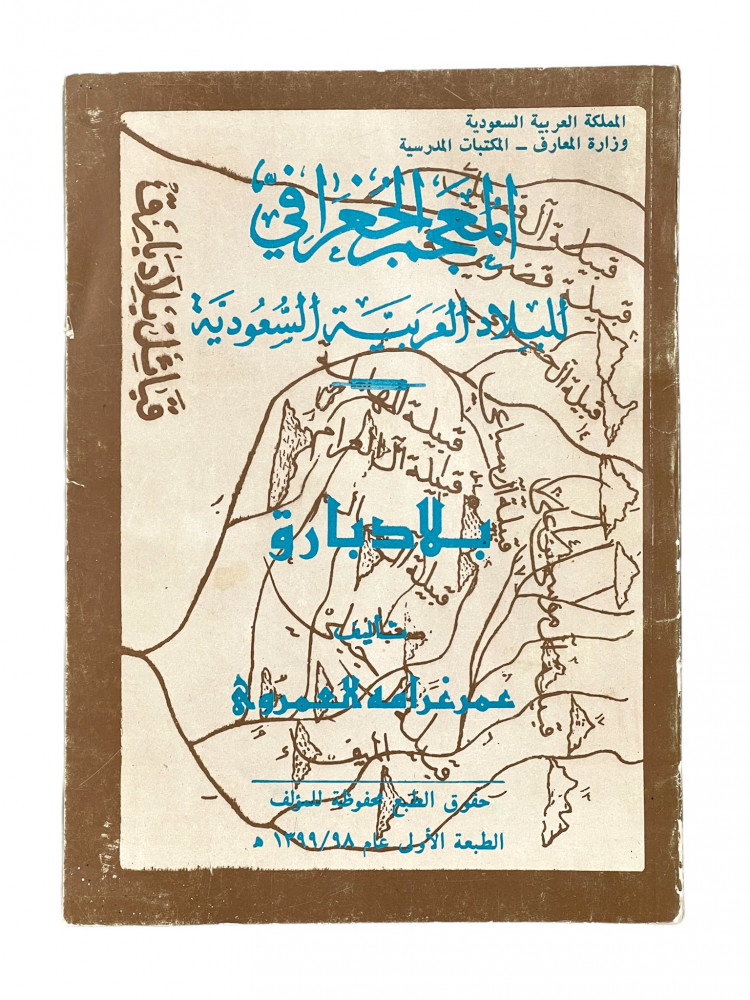 المملكة العربية السعودية
وزارة المعارف – المكتبات المدرسية
المعجم الجغرافي
للبلاد العربية السعودية
قبائل بلاد بارق
قبيلة آل
قبيلة
قبيلة
قبيلة
قبيلة آل العرام
قبيلة
بلاد بارق
تأليف
عمر غرامه العمروي
حقوق الطبع محفوظة للمؤلف
الطبعة الأولى عام ١٣٩٩/٩٨ ه